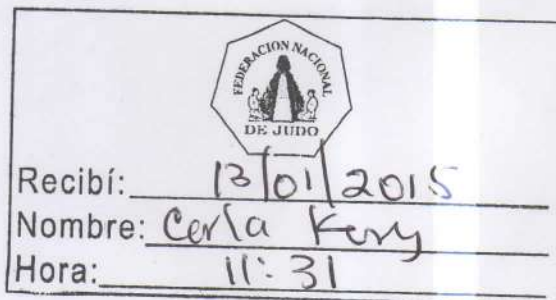 FEDERACION NACIONAL
DE JUDO
Recibí: 13/01/2015
Nombre: Carla
Hora: 11:31